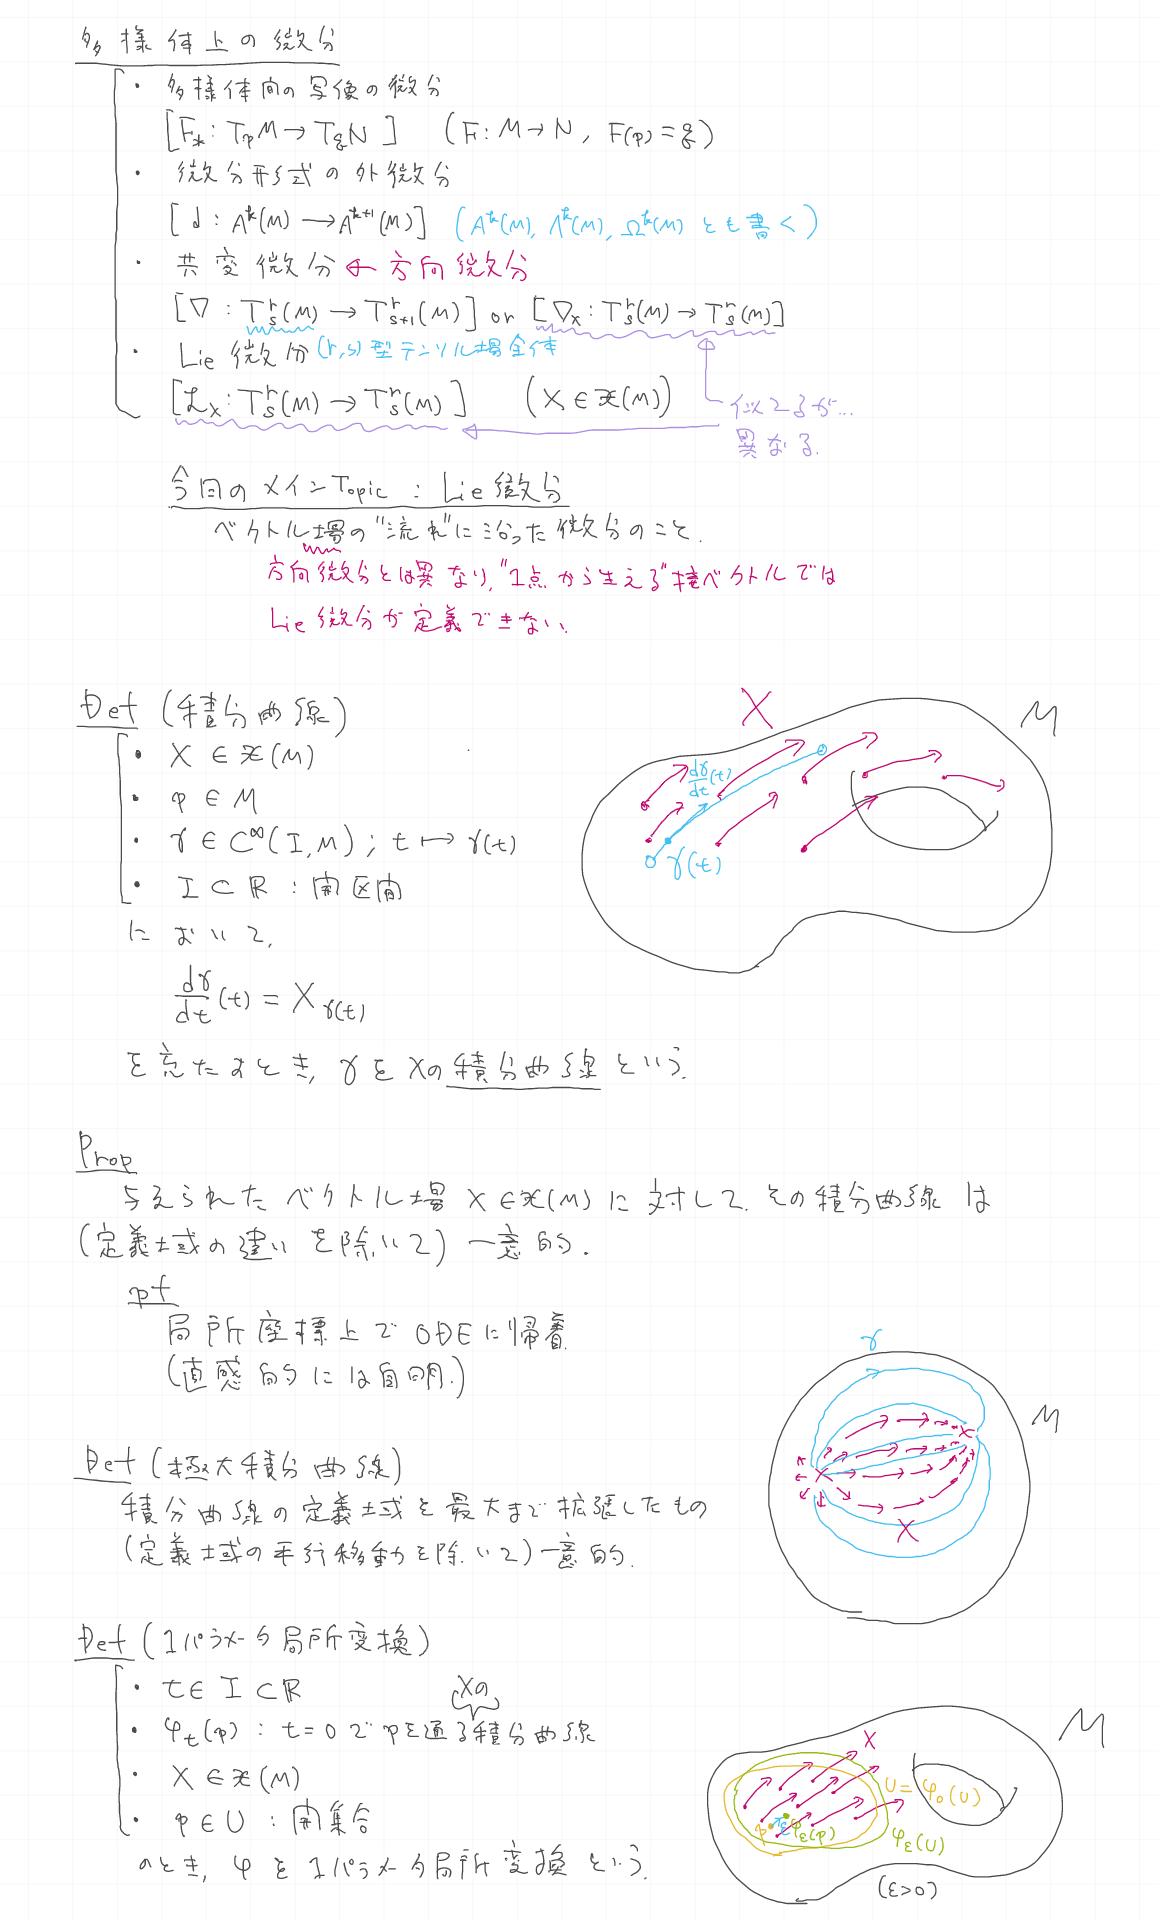 多様体上の微分
・ 多様体間の写像の微分
[F_*: T_pM → T_qN] (F: M → N, F(p) = q)
・ 微分形式の外微分
[d: A^k(M) → A^{k+1}(M)] (A^k(M), Λ^k(M), Ω^k(M) とも書く)
・ 共変微分 ← 方向微分
[∇: T^r_s(M) → T^r_{s+1}(M)] or [∇_X: T^r_s(M) → T^r_s(M)]
・ Lie 微分 (r,s)型テンソル場全体
[L_X: T^r_s(M) → T^r_s(M)] (X ∈ 𝔛(M))
似てるが...
異なる.
今回のメインTopic : Lie 微分
ベクトル場の"流れ"に沿った微分のこと.
方向微分とは異なり, "1点から生える"接ベクトルでは
Lie 微分が定義できない.
Def (積分曲線)
・ X ∈ 𝔛(M)
・ p ∈ M
・ γ ∈ C^∞(I, M) ; t ↦ γ(t)
・ I ⊂ ℝ : 開区間
において,
dγ/dt (t) = X_{γ(t)}
を充たすとき, γ を Xの積分曲線という.
X
M
dγ/dt (t)
γ(t)
Prop
与えられた ベクトル場 X ∈ 𝔛(M) に 対して その積分曲線 は
(定義域の違い を除いて) 一意的.
pf
局所座標上で ODE に帰着
(直感的には自明.)
γ
M
X
Def (極大積分曲線)
積分曲線の定義域を最大まで拡張したもの
(定義域の平行移動を除いて) 一意的.
Def (1パラメータ局所変換)
・ t ∈ I ⊂ ℝ
Xの
・ φ_t(p) : t=0 で pを通る積分曲線
・ X ∈ 𝔛(M)
・ p ∈ U : 開集合
のとき, φ を 1パラメータ局所変換 という.
M
X
U = φ_0(U)
p
φ_ε(p)
φ_ε(U)
(ε>0)